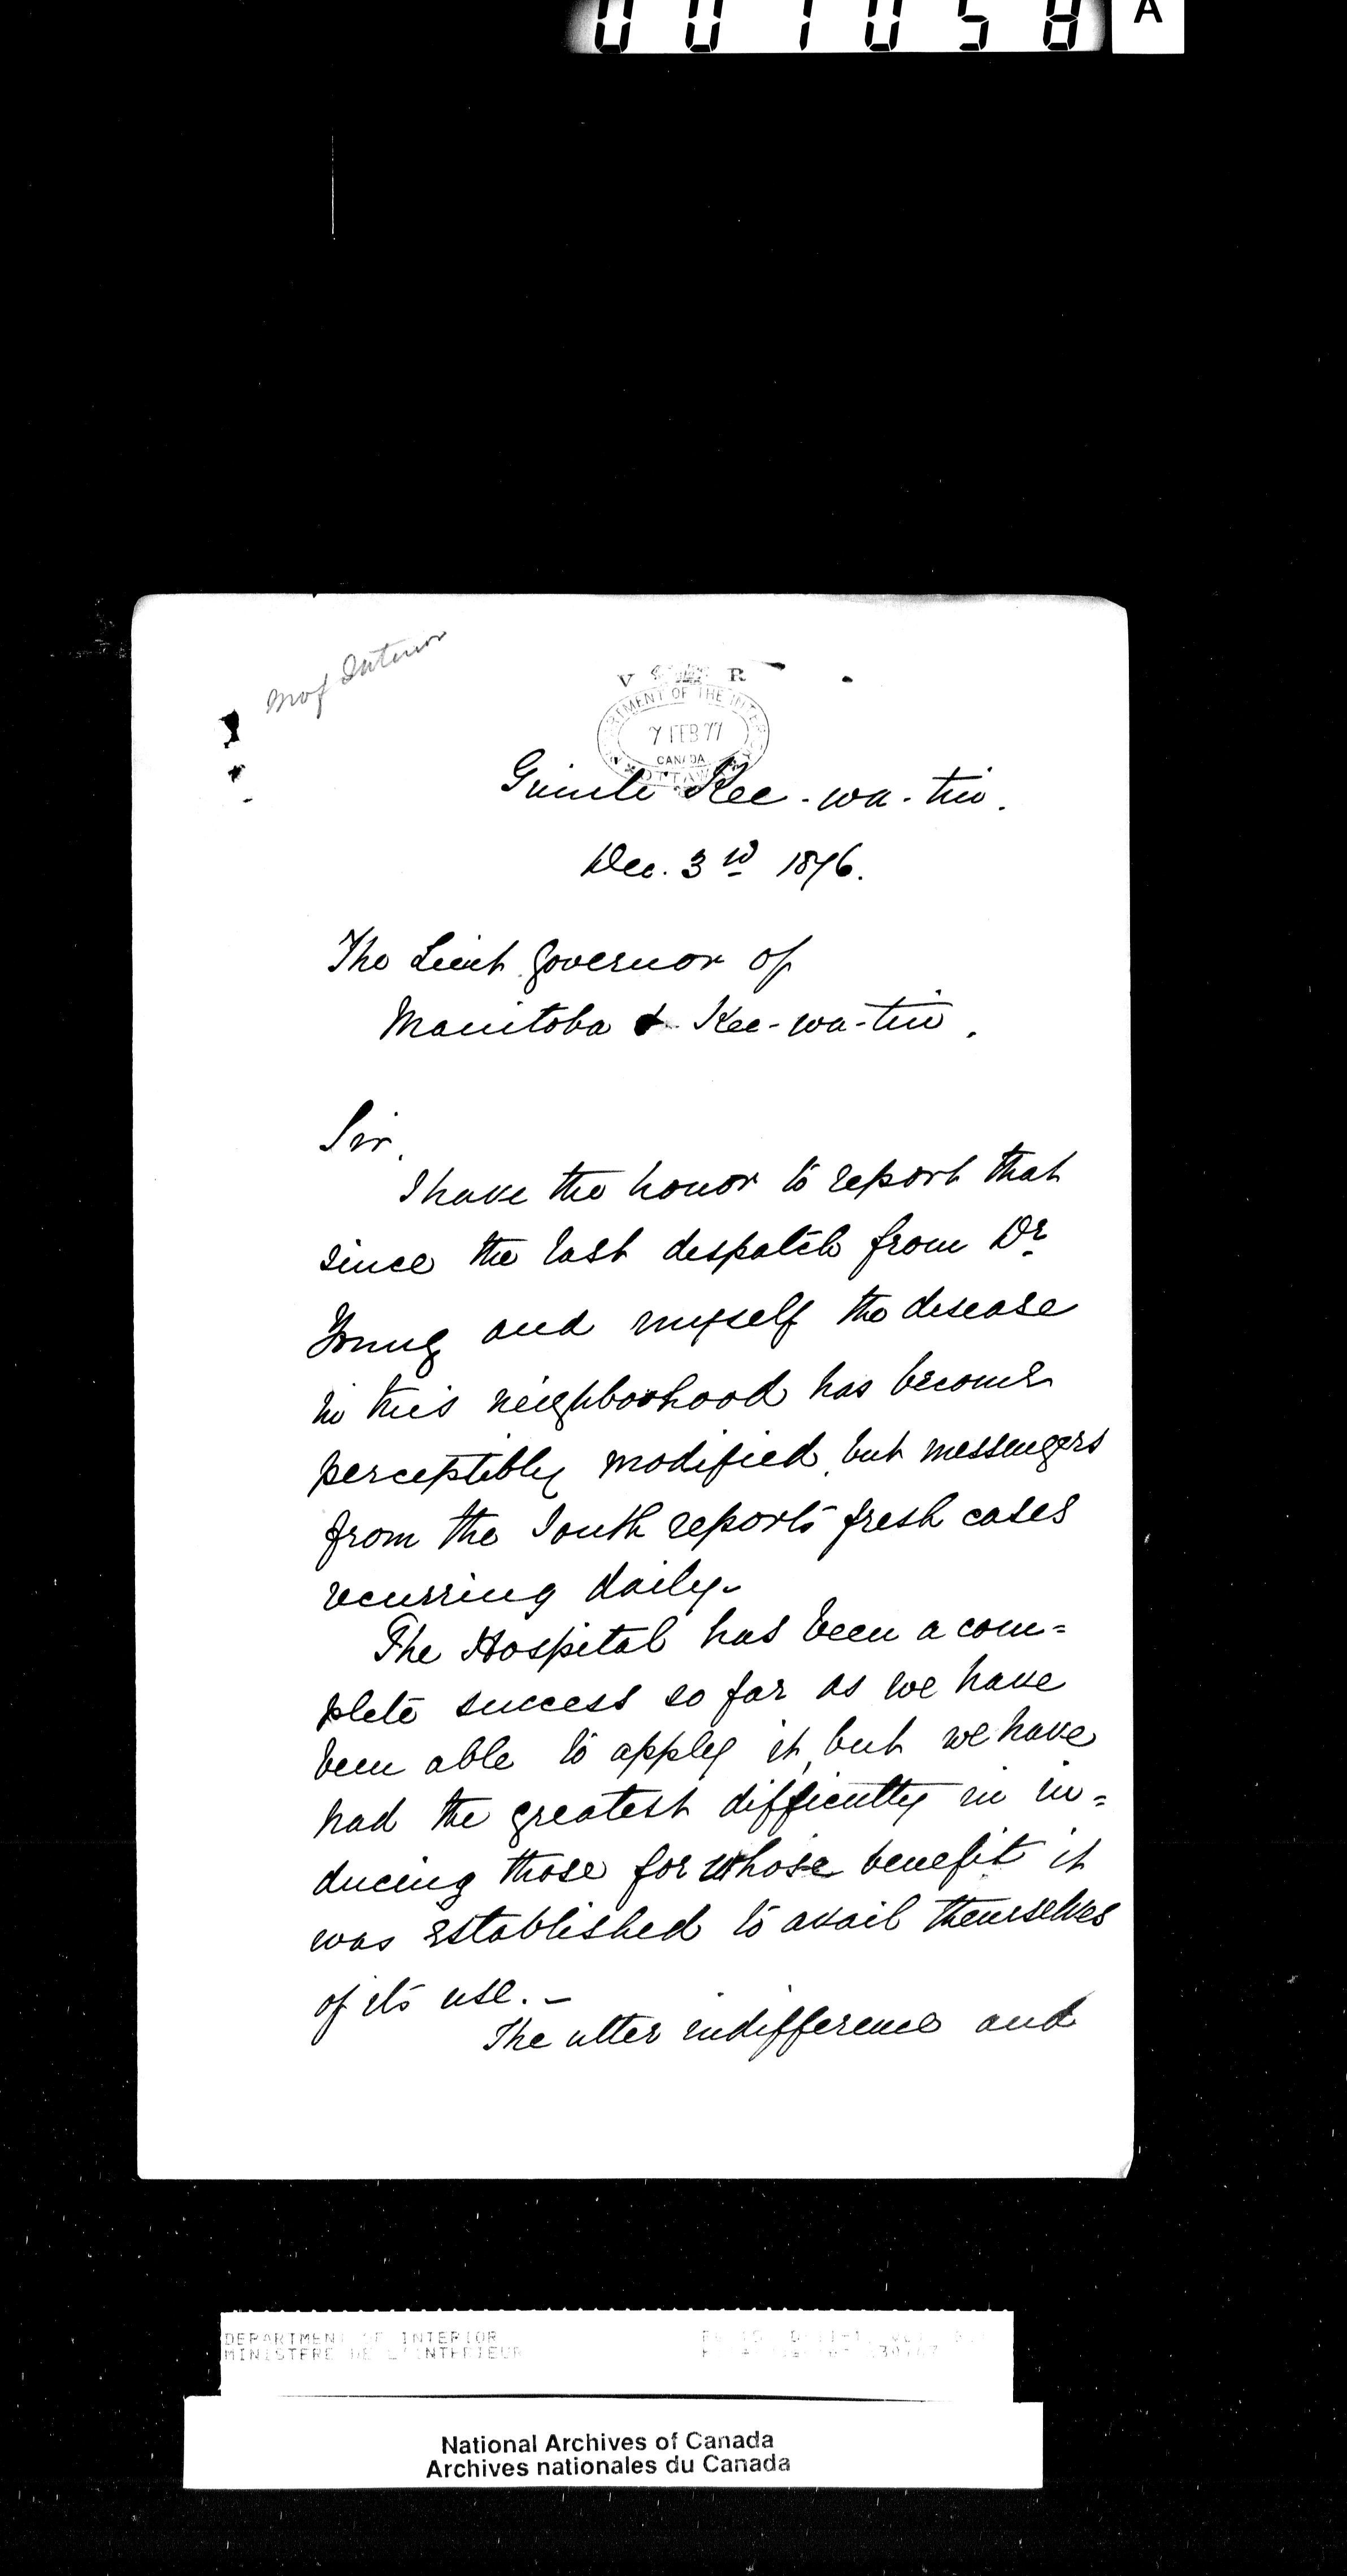 001058
A
M of Interior
V R
DEPARTMENT OF THE INTERIOR
7 FEB 77
CANADA
OTTAWA
Gimli Kee-wa-tin.
Dec. 3rd 1876.
The Lieut. Governor of
Manitoba & Kee-wa-tin.
Sir,
I have the honor to report that
since the last despatch from Dr.
Young and myself the disease
in this neighborhood has become
perceptibly modified, but messengers
from the South reports fresh cases
recurring daily.
The Hospital has been a com=
plete success so far as we have
been able to apply it, but we have
had the greatest difficulty in in=
ducing those for whose benefit it
was established to avail themselves
of its use. -
The utter indifference and
DEPARTMENT OF INTERIOR
MINISTERE DE L'INTERIEUR
National Archives of Canada
Archives nationales du Canada